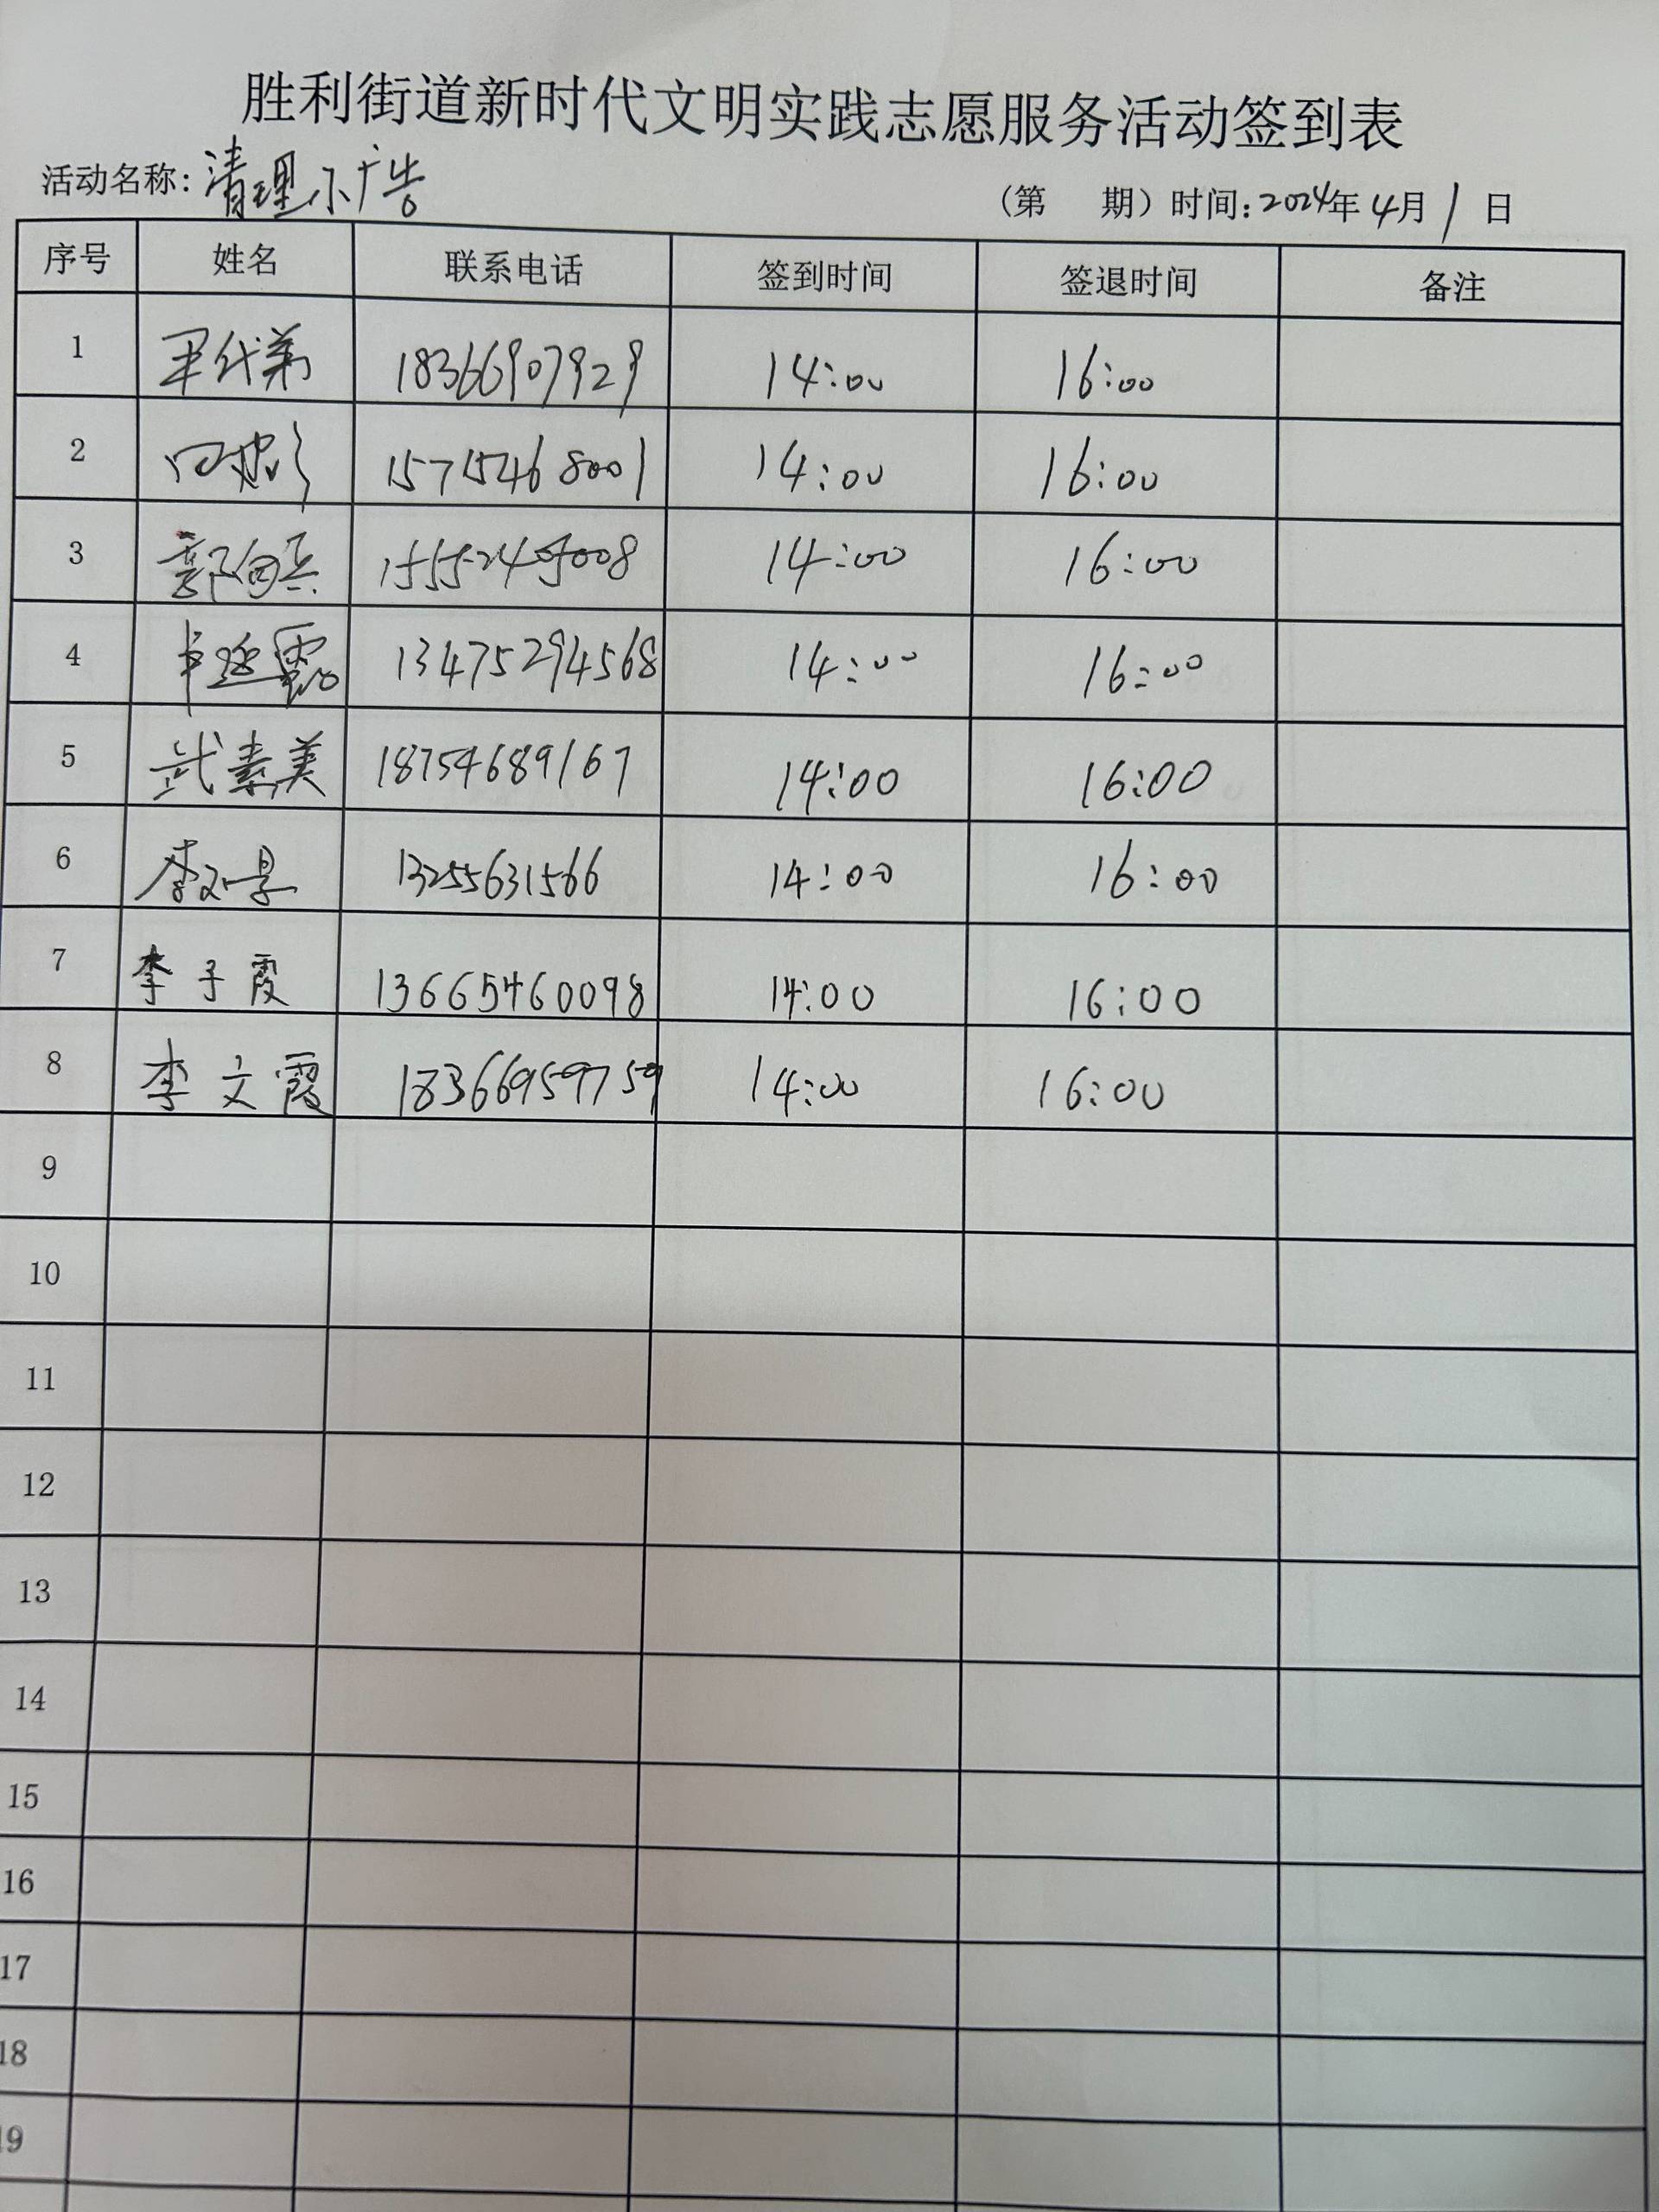 胜利街道新时代文明实践志愿服务活动签到表
活动名称:清理小广告 (第 期)时间:2024年4月1日
序号 姓名 联系电话 签到时间 签退时间 备注
1 18366907929 14:00 16:00
2 15715468001 14:00 16:00
3 15552405008 14:00 16:00
4 13475294568 14:00 16:00
5 武素美 18754689167 14:00 16:00
6 李 13255631566 14:00 16:00
7 李子霞 13665460098 14:00 16:00
8 李文霞 18366959759 14:00 16:00
9
10
11
12
13
14
15
16
17
18
19